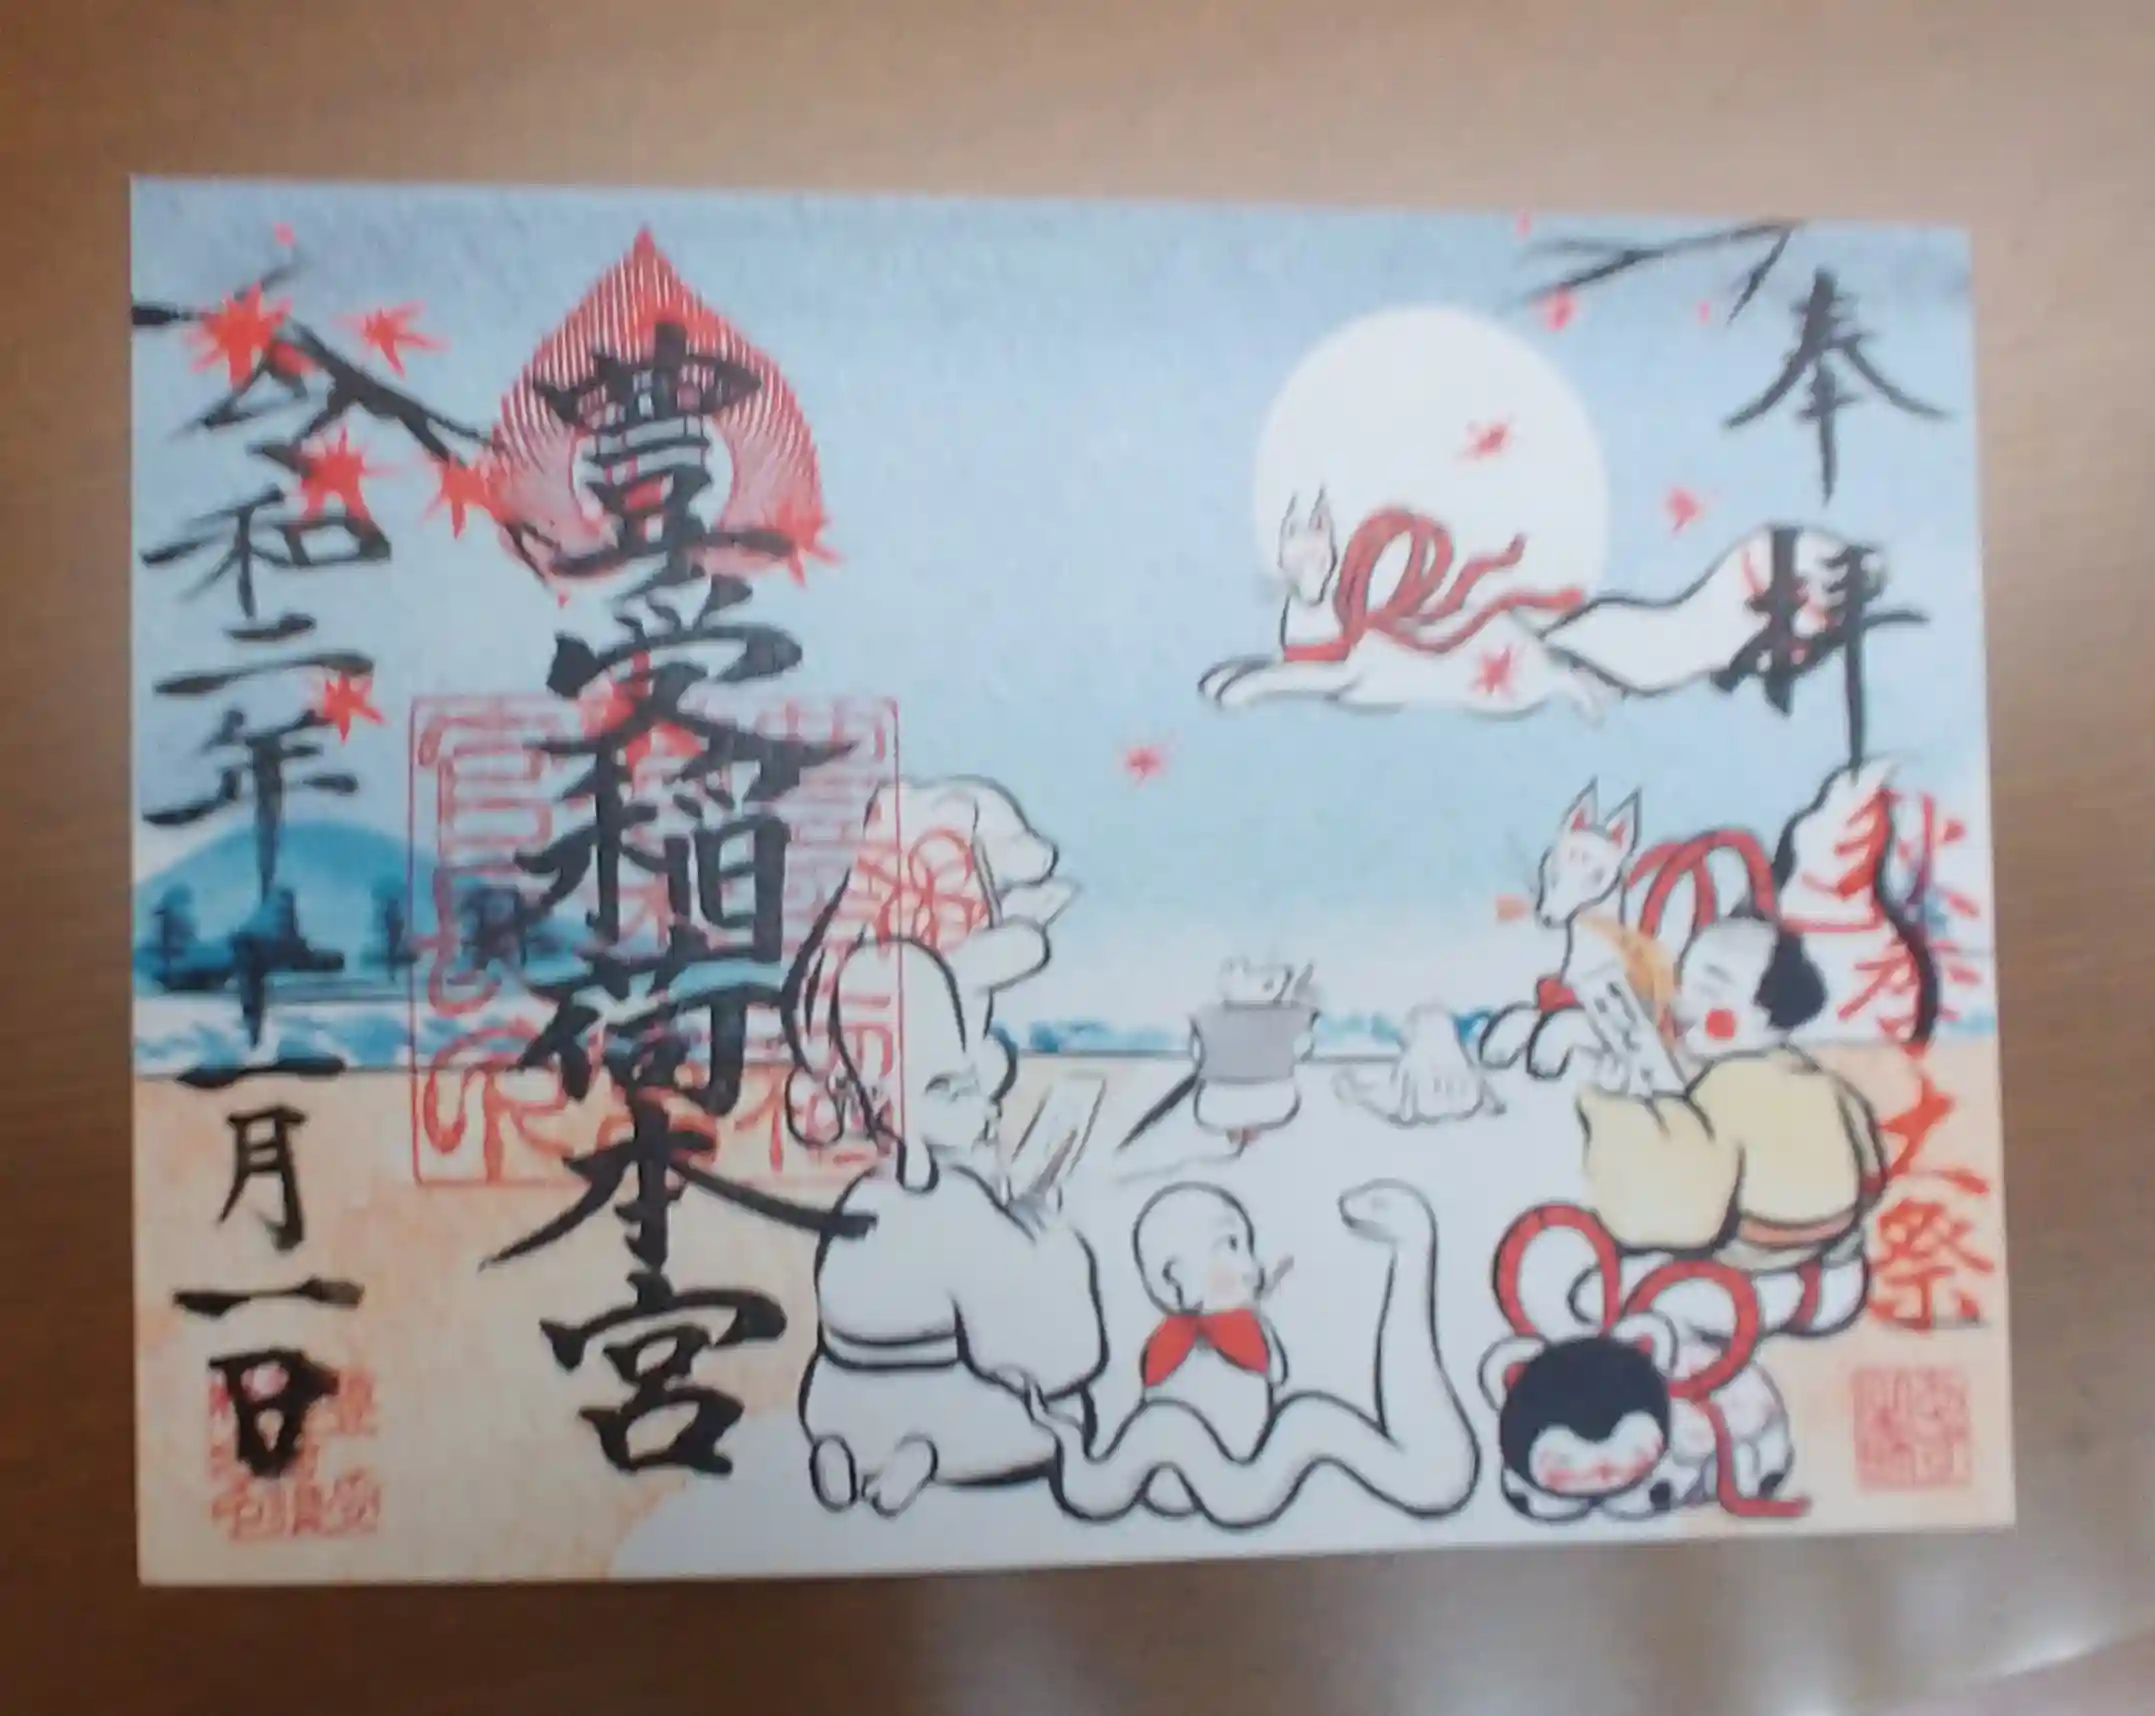 奉拝
秋季大祭
豊受稲荷本宮
令和二年十一月一日